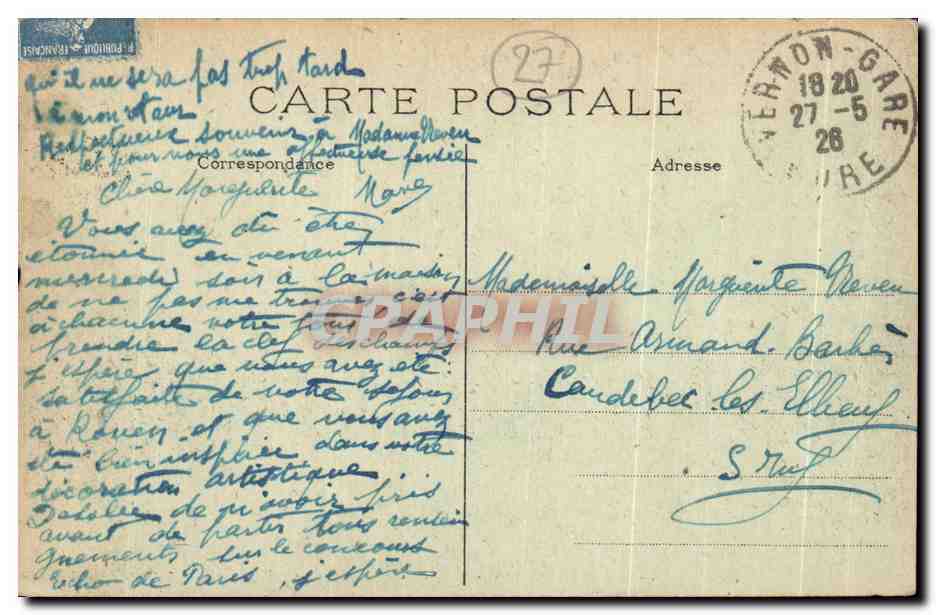 RÉPUBLIQUE FRANÇAISE
27
VERNON-GARE
18 20
27 -5
26
EURE
CARTE POSTALE
Correspondance
Adresse
qu'il ne sera pas trop tard
à mon retour
Respectueux souvenir à Madame Neveu
et pour vous une affectueuse pensée
Chère Marguerite
Vous avez du être
étonnée en venant
mercredi soir à la maison
de ne pas me trouver, c'est
à chacune votre tour de
prendre la clef des champs
j'espère que vous avez été
satisfaite de votre séjour
à Rouen et que vous avez
été bien inspirée dans votre
décoration artistique
Désolée de n'avoir pris
avant de partir tous rensei
gnements sur le concours
Echo de Paris, j'espère
Mademoiselle Marguerite Neveu
Rue Armand Barbès
Caudebec les Elbeuf
S Inf
CPAPHIL